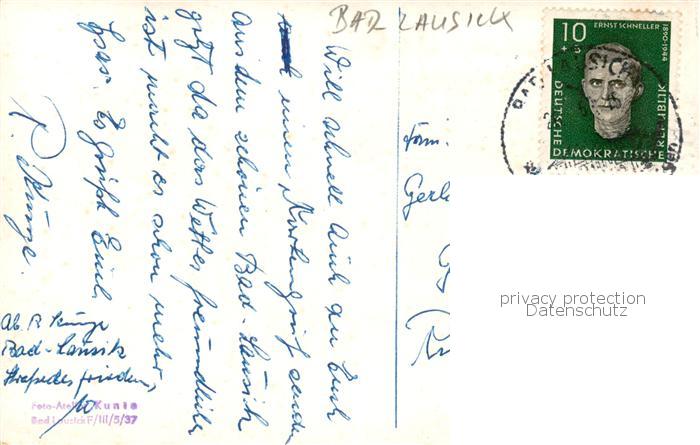 BAD LAUSICK
10
+5
ERNST SCHNELLER 1890-1944
DEUTSCHE
DEMOKRATISCHE
REPUBLIK
BAD LAUSICK
Will schnell auch an Euch
einen Kartengruß senden
aus dem schönen Bad-Lausick
jetzt da das Wetter freundlicher
ist macht es schon mehr
Spass. Es grüßt Euch
R. Kunze.
Fam.
Gerh
Ab. R Kunze
Bad-Lausik
Straße des Friedens
10
Foto-Atelier Kunie
Bad Lausick F/III/5/37
privacy protection
Datenschutz